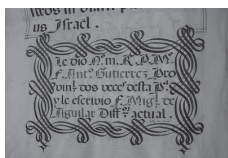 us Israel.
Le dio N.º m. R. P. M.º
F. Antº Gutierrez, Pro
vinl. dos veces desta Pª.
y le escrivio F. Migl. de
Aguilar Diffºr actual.